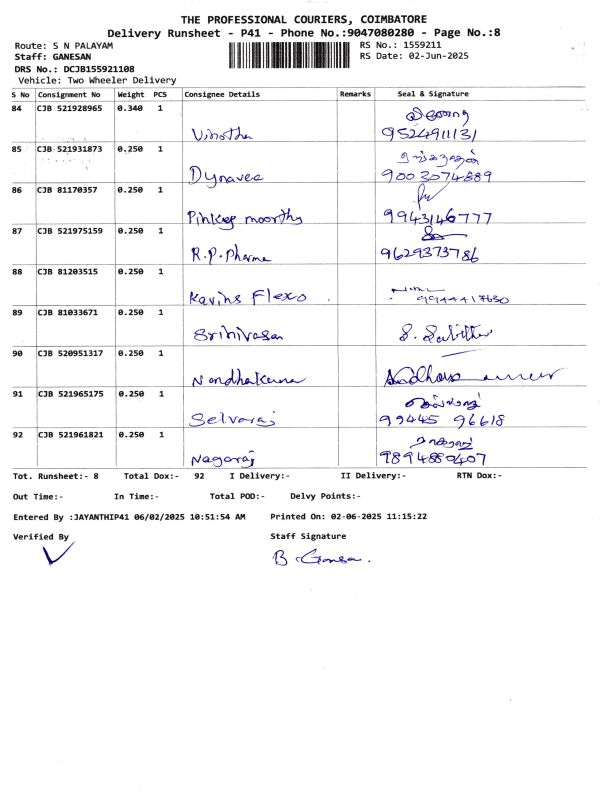 THE PROFESSIONAL COURIERS, COIMBATORE
Delivery Runsheet - P41 - Phone No.:9047080280 - Page No.:8
Route: S N PALAYAM
RS No.: 1559211
Staff: GANESAN
RS Date: 02-Jun-2025
DRS No.: DCJB155921108
Vehicle: Two Wheeler Delivery
S No Consignment No Weight PCS Consignee Details Remarks Seal & Signature
84 CJB 521928965 0.340 1
Vinotha 9524911131
85 CJB 521931873 0.250 1
Dynavee 9003074889
86 CJB 81170357 0.250 1
Pinkey moorthy 9943146777
87 CJB 521975159 0.250 1
R.P. Pharma 9629373786
88 CJB 81203515 0.250 1
Kavins Flexo 9944417630
89 CJB 81033671 0.250 1
Srinivasan S.
90 CJB 520951317 0.250 1
Nandhakumar
91 CJB 521965175 0.250 1 செல்வராஜ்
Selvaraj 99445 96618
92 CJB 521961821 0.250 1 நாகராஜ்
Nagaraj 9894880407
Tot. Runsheet:- 8 Total Dox:- 92 I Delivery:- II Delivery:- RTN Dox:-
Out Time:- In Time:- Total POD:- Delvy Points:-
Entered By :JAYANTHIP41 06/02/2025 10:51:54 AM Printed On: 02-06-2025 11:15:22
Verified By Staff Signature
B. Ganesa.